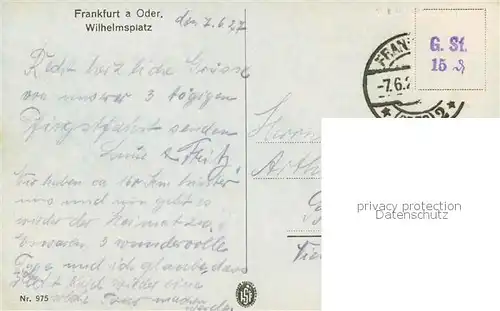 Frankfurt a Oder,
Wilhelmsplatz
den 7.6.27
Recht herzliche Grüsse
von unserer 3 tägigen
Pfingstfahrt senden
Fritz
Wir haben ca 160 km hinter
uns und nun geht es
wieder der Heimat zu.
Es waren 3 wundervolle
Tage und ich glaube, dass
wir eine
solche Tour machen
werden
Nr. 975
FRAN
-7.6.2
2
G. St.
15 ₰
Herrn
Arth
privacy protection
Datenschutz